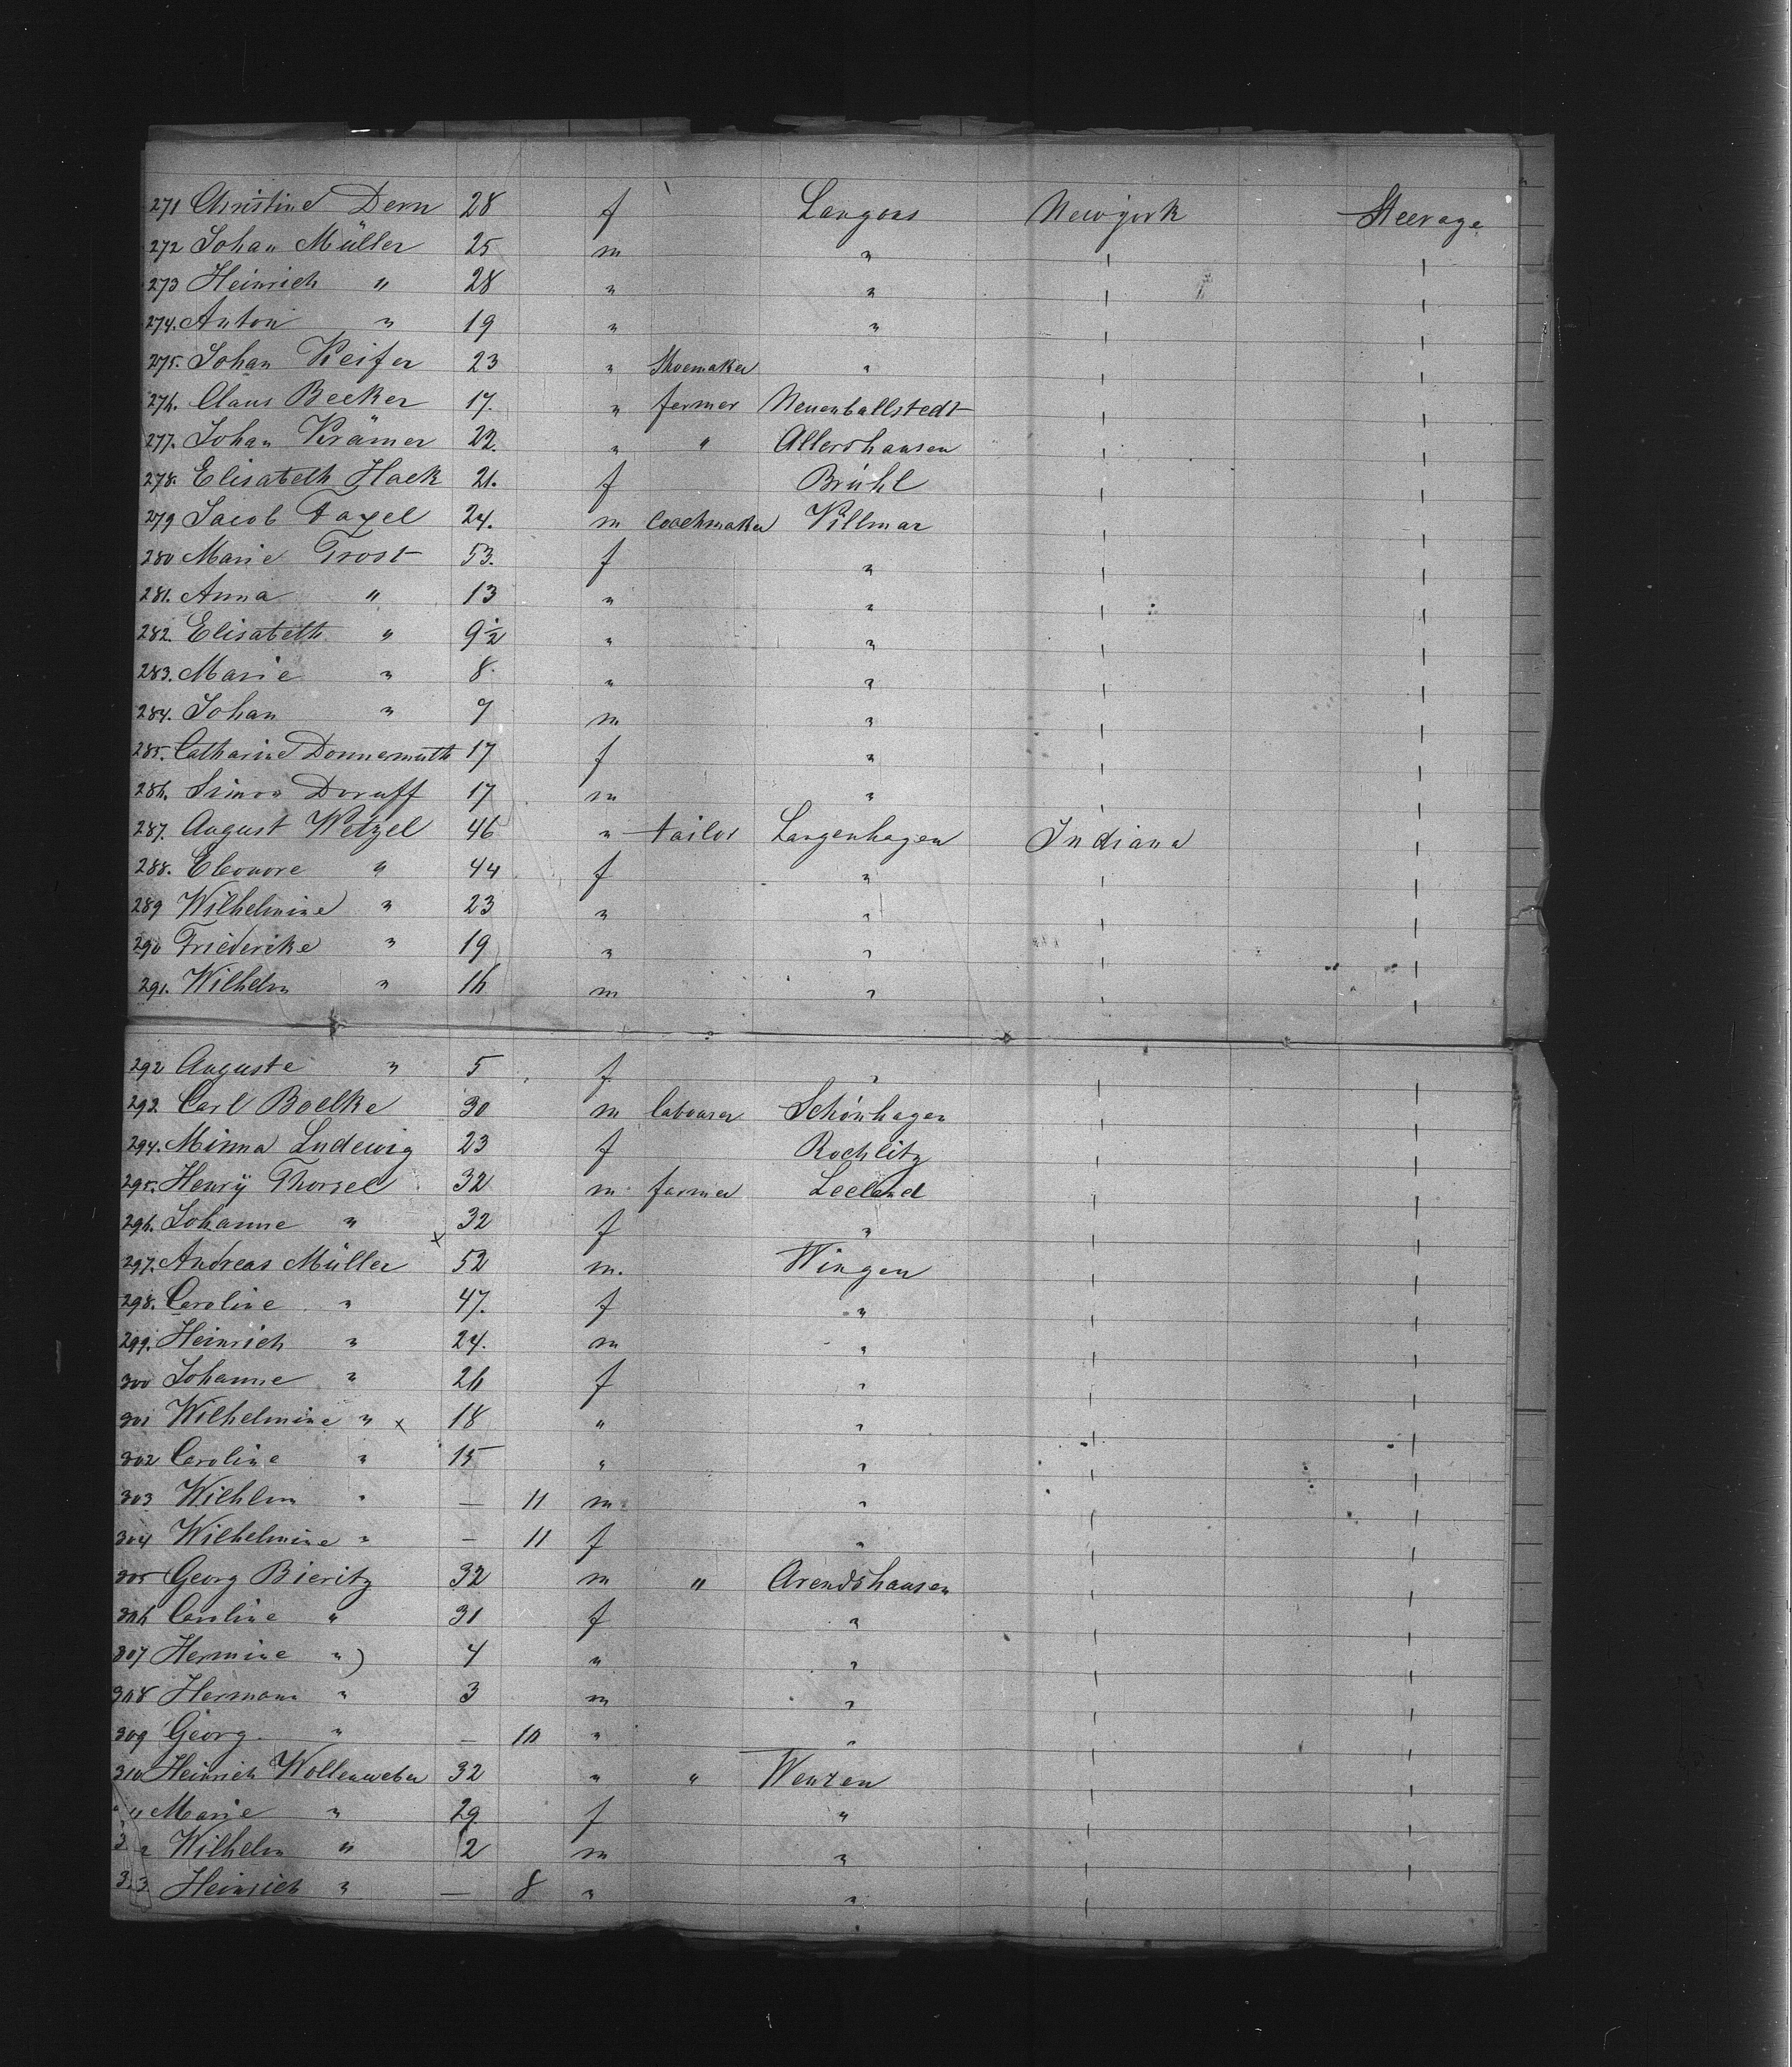 271 Christine Dern 28 f Langons Newyork Steerage
272 Johan Müller 25 m " ' '
273 Heinrich " 28 " " ' '
274. Anton " 19 " " ' '
275. Johan Keifer 23 " Shoemaker " ' '
276. Claus Becker 17. " farmer Neuenballstedt ' '
277. Johan Krämer 22. " " Allershausen ' '
278. Elisabeth Hack 21. f Brühl ' '
279 Jacob Faxel 24. m Coachmaker Villmar ' '
280 Marie Trost 53. f " ' '
281. Anna " 13 " " ' '
282. Elisabeth " 9½ " " ' '
283. Marie " 8. " " ' '
284. Johan " 7 m " ' '
285. Catharine Donnermuth 17 f " ' '
286. Simon Doruff 17 m " ' '
287. August Wetzel 46 " tailor Langenhagen Indiana '
288. Eleonore " 44 f " ' '
289 Wilhelmine " 23 " " ' '
290 Friederike " 19 " " ' '
291. Wilhelm " 16 m " ' '
292 Auguste " 5 f " ' '
293 Carl Boelke 30 m labourer Schönhagen ' '
294. Minna Ludewig 23 f Rochlitz ' '
295. Henrÿ Thorsel 32 m farmer Leeland ' '
296. Johanne " 32 f " ' '
297. Andreas Müller x 52 m. Wingen ' '
298. Caroline " 47. f " ' '
299. Heinrich " 24. m " ' '
300 Johanne " 26 f " ' '
301 Wilhelmine " x 18 " " ' '
302 Caroline " 15 " " ' '
303 Wilhlm " — 11 m " ' '
304 Wilhelmine " — 11 f " ' '
305 Georg Bieritz 32 m " Arendshausen ' '
306 Caroline " 31 f " ' '
307 Hermine " ) 4 " " ' '
308 Hermann " 3 m " ' '
309 Georg " — 10 " " ' '
310 Heinrich Wollenweber 32 " " Wenzen ' '
" 11 Marie " 29 f " ' '
3 2 Wilhelm " 2 m " ' '
3.3 Heinrich " — 8 " " '